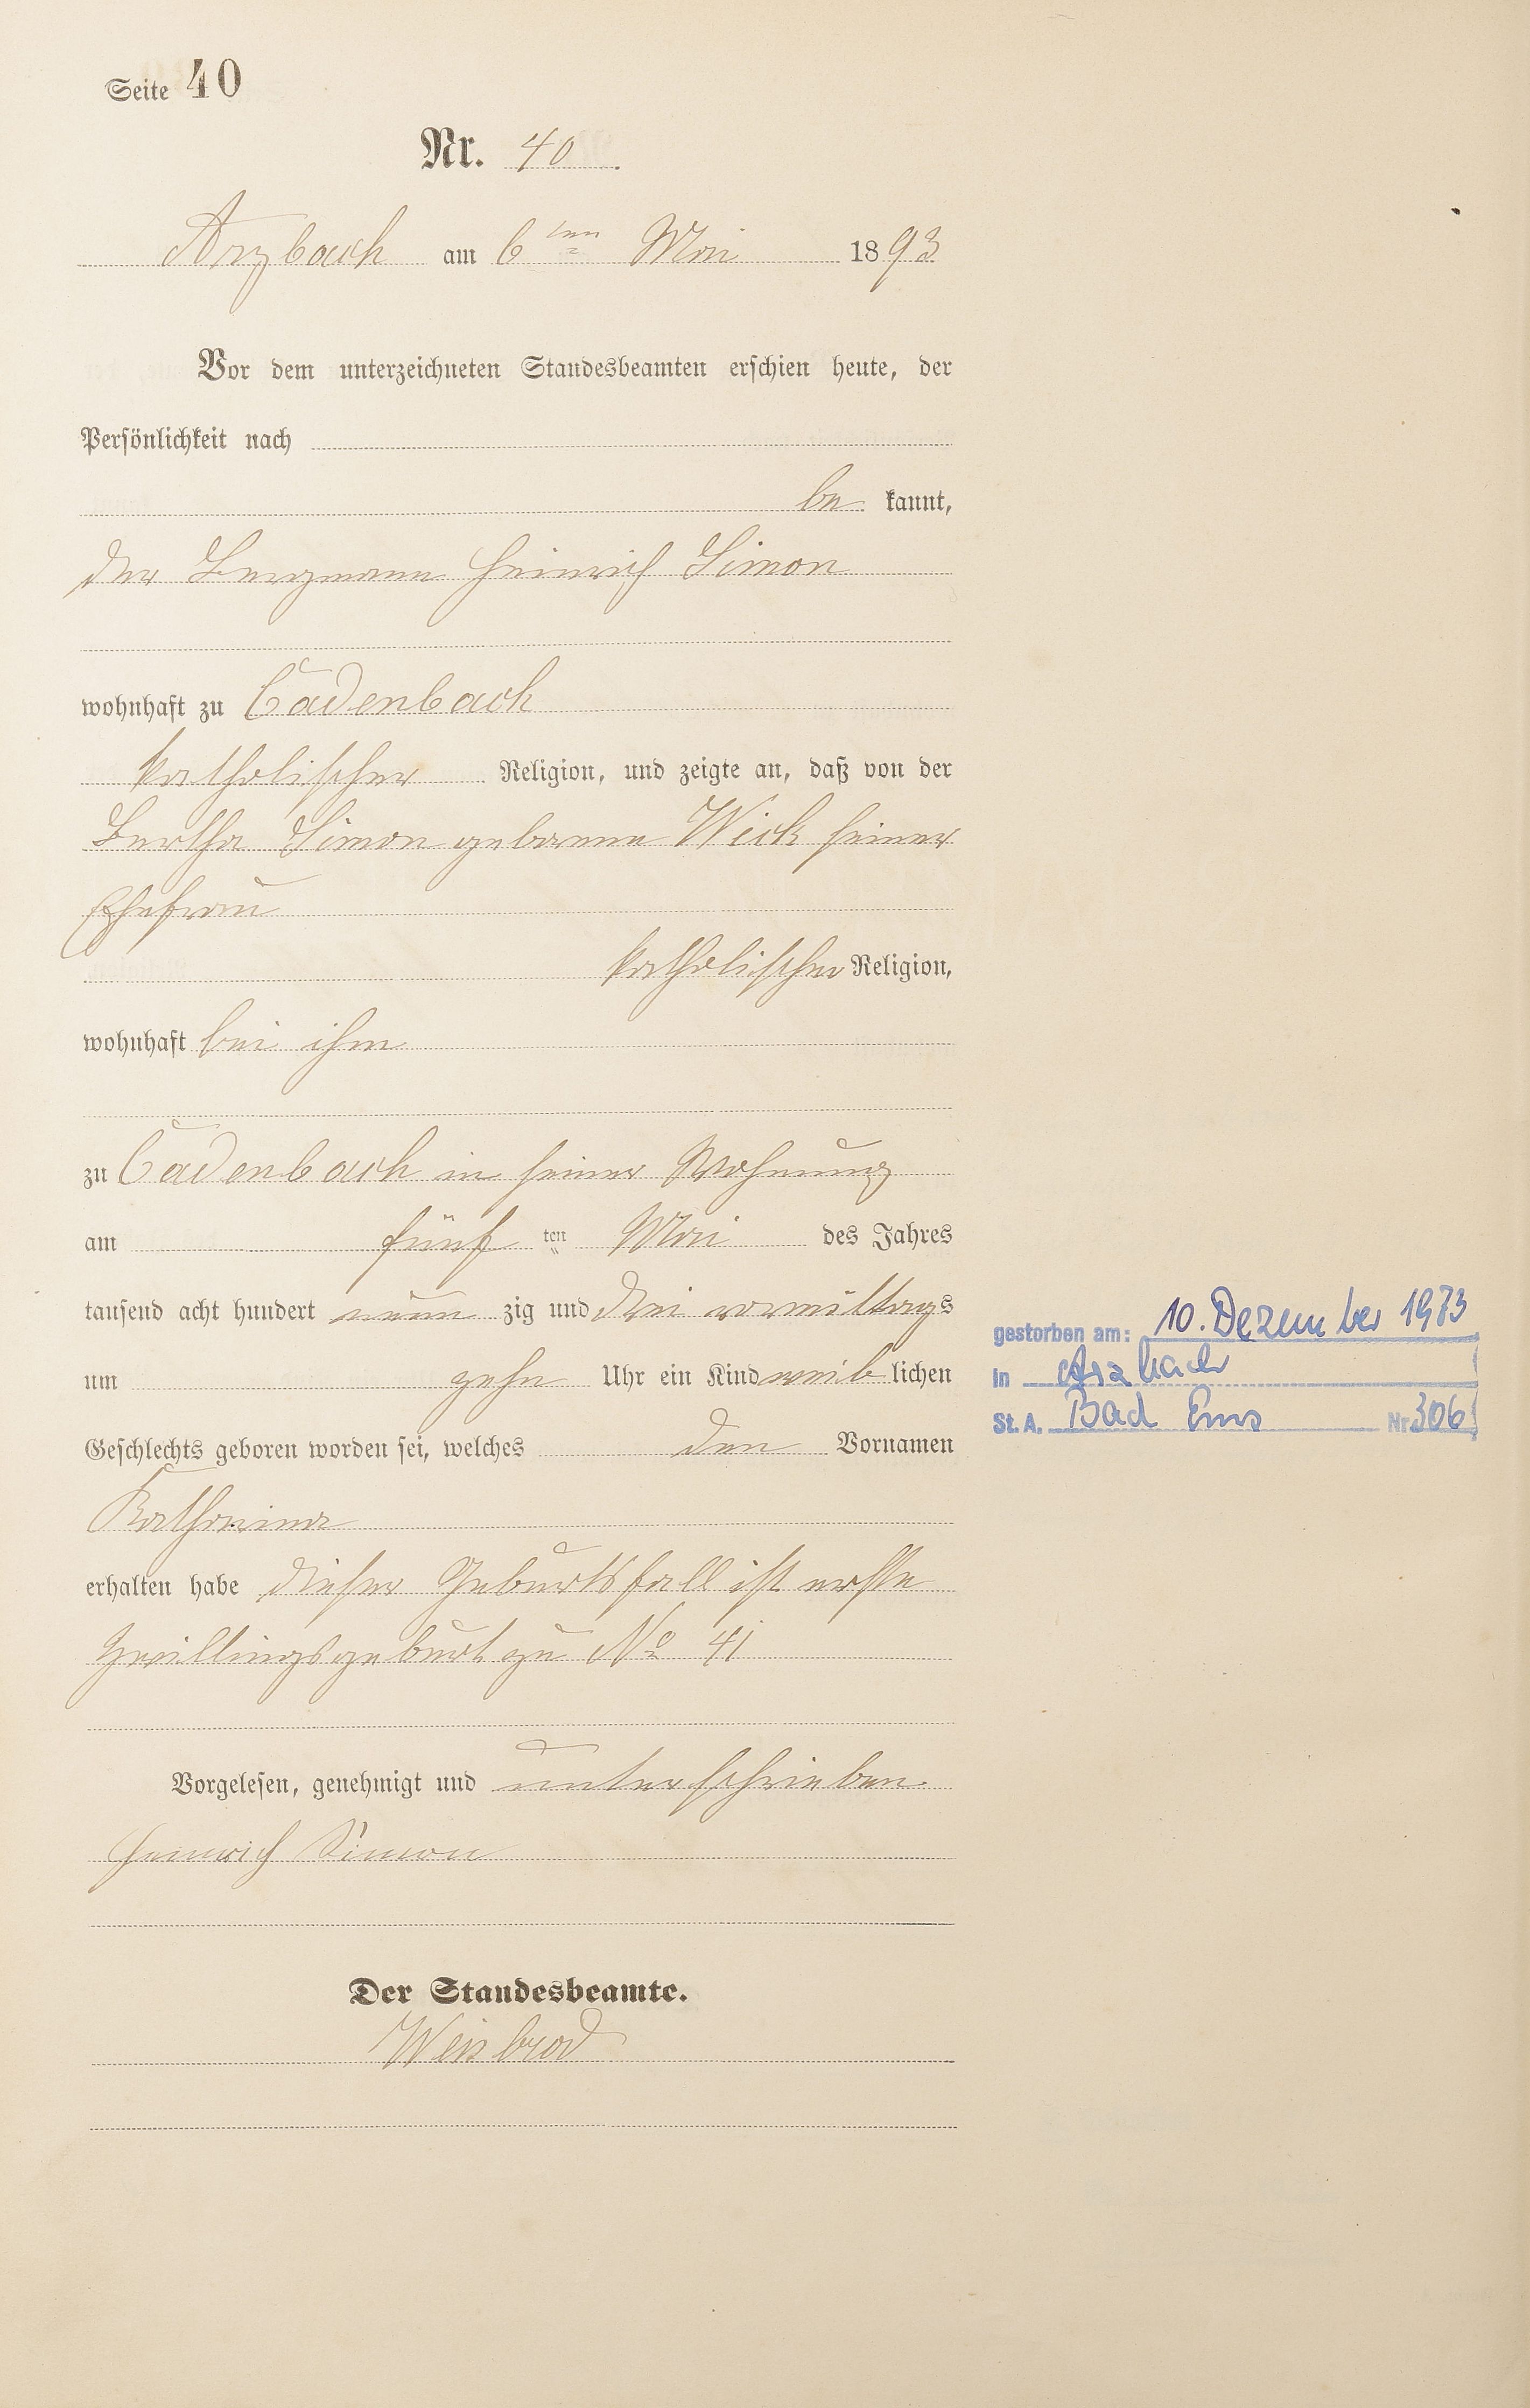 Seite 40
Nr. 40.
Arzbach am 6ten Mai 1893
Vor dem unterzeichneten Standesbeamten erschien heute, der
Persönlichkeit nach
be kannt,
der Bergmann Heinrich Simon
wohnhaft zu Cadenbach
katholischer Religion, und zeigte an, daß von der
Bertha Simon geborene Wick seiner
Ehefrau
katholischer Religion,
wohnhaft bei ihm
zu Cadenbach in seiner Wohnung
am fünf ten Mai des Jahres
tausend acht hundert neun zig und drei vormittags
um zehn Uhr ein Kind weib lichen
Geschlechts geboren worden sei, welches den Vornamen
Katharina
erhalten habe dieser Geburtsfall ist erste
Zwillingsgeburt zu No 41
Vorgelesen, genehmigt und unterschrieben.
Heinrich Simon
Der Standesbeamte.
Weisbrod
gestorben am: 10. Dezember 1973
in Arzbach
St. A. Bad Ems Nr 306